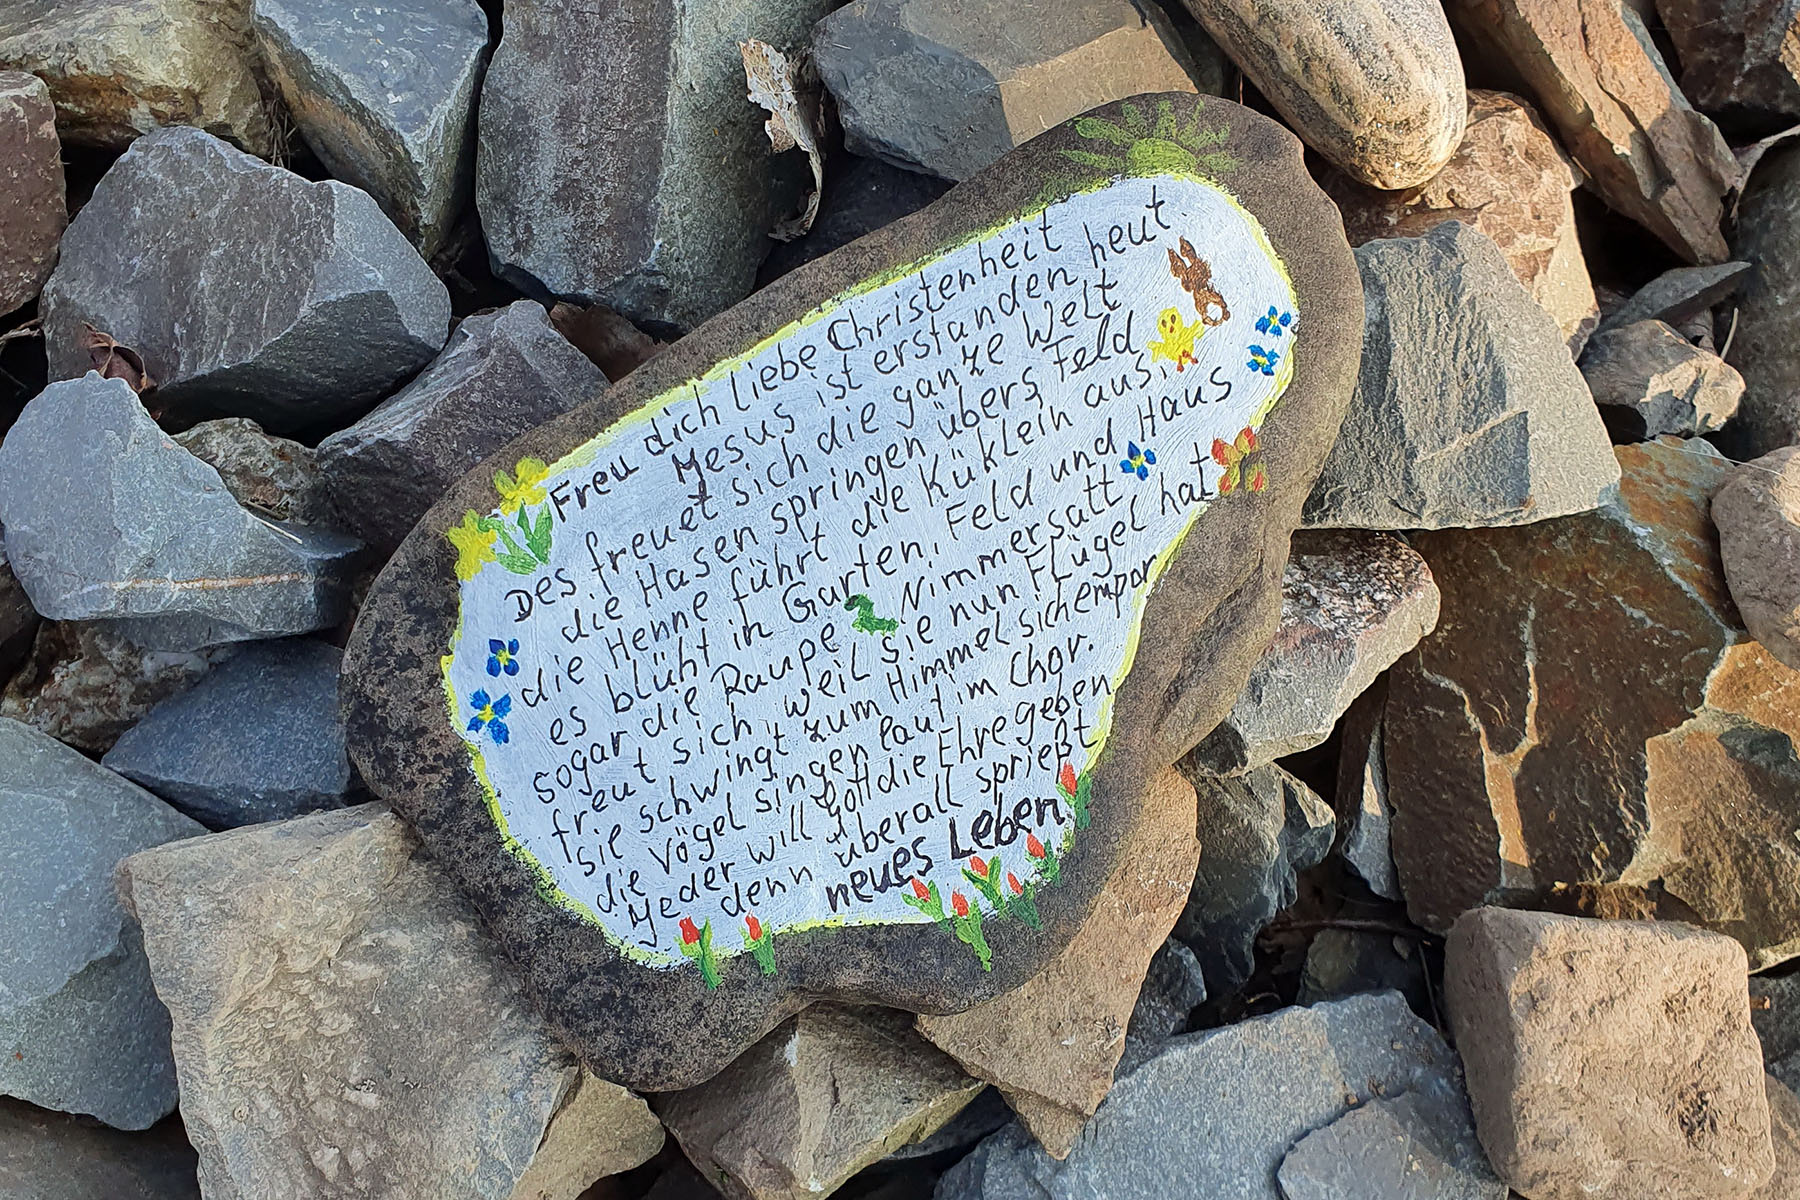 Freu dich liebe Christenheit
Jesus ist erstanden heut.
Des freuet sich die ganze Welt
die Hasen springen übers Feld
die Henne führt die Küklein aus,
es blüht in Garten, Feld und Haus
sogar die Raupe Nimmersatt
freut sich, weil sie nun Flügel hat
sie schwingt zum Himmel sich empor
die Vögel singen laut im Chor.
Jeder will Gott die Ehre geben
denn überall sprießt
neues Leben